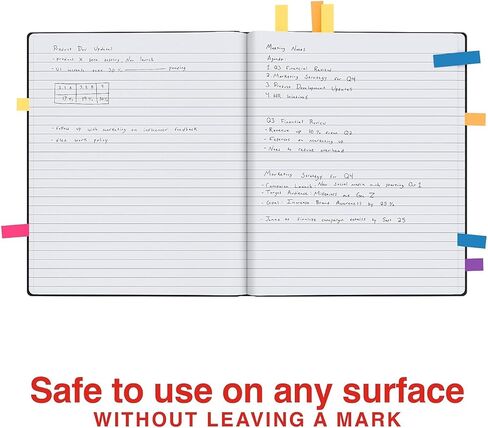 Product Dev Updates
- product X beta testing, Nov launch
- UI 30% pending
- follow up with marketing on influencer feedback
- also work policy
Meeting Notes
Agenda
1. Q3 Financial Review
2. Marketing Strategy for Q4
3. Product Development Updates
4. HR
Q3 Financial Review
- Revenue up 10% from Q2
- Expenses on marketing up
- Need to reduce overhead
Marketing Strategy for Q4
- Campaign Launch: New social media with Oct 1
- Target Audience: Millennials and Gen Z
- Goal: Increase Brand Awareness by 25%
- to finalize campaign details by Sept 25
Safe to use on any surface
WITHOUT LEAVING A MARK